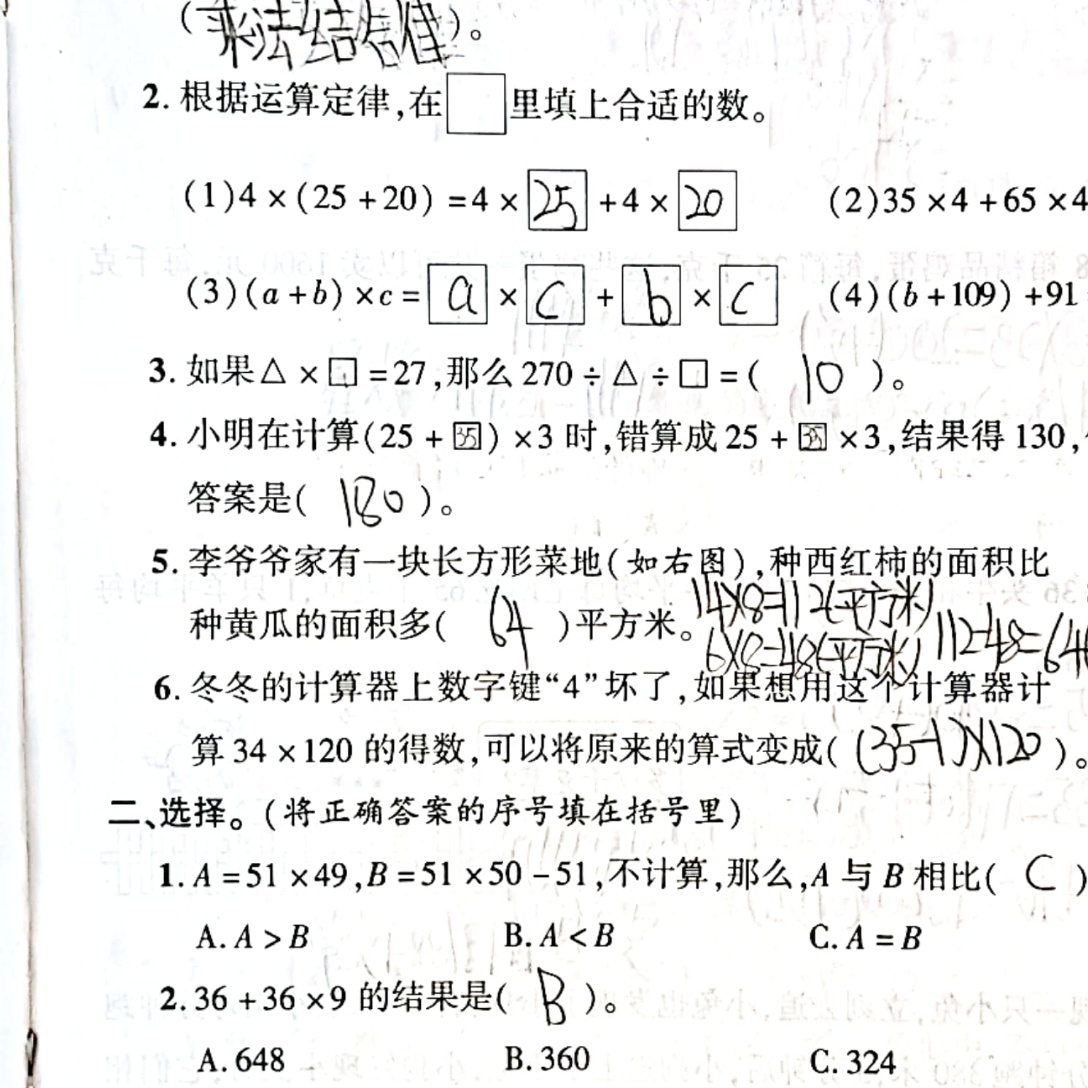 (乘法结合律)。
2. 根据运算定律,在□里填上合适的数。
(1)4×(25+20)=4×25+4×20 (2)35×4+65×4
(3)(a+b)×c=a×c+b×c (4)(b+109)+91
3. 如果△×□=27,那么270÷△÷□=( 10 )。
4. 小明在计算(25+35)×3时,错算成25+35×3,结果得130,
答案是( 180 )。
5. 李爷爷家有一块长方形菜地(如右图),种西红柿的面积比
种黄瓜的面积多( 64 )平方米。
14×8=112(平方米)
6×8=48(平方米) 112-48=64
6. 冬冬的计算器上数字键“4”坏了,如果想用这个计算器计
算34×120的得数,可以将原来的算式变成( (35-1)×120 )。
二、选择。(将正确答案的序号填在括号里)
1. A=51×49,B=51×50-51,不计算,那么,A与B相比( C )
A. A>B B. A<B C. A=B
2. 36+36×9的结果是( B )。
A. 648 B. 360 C. 324